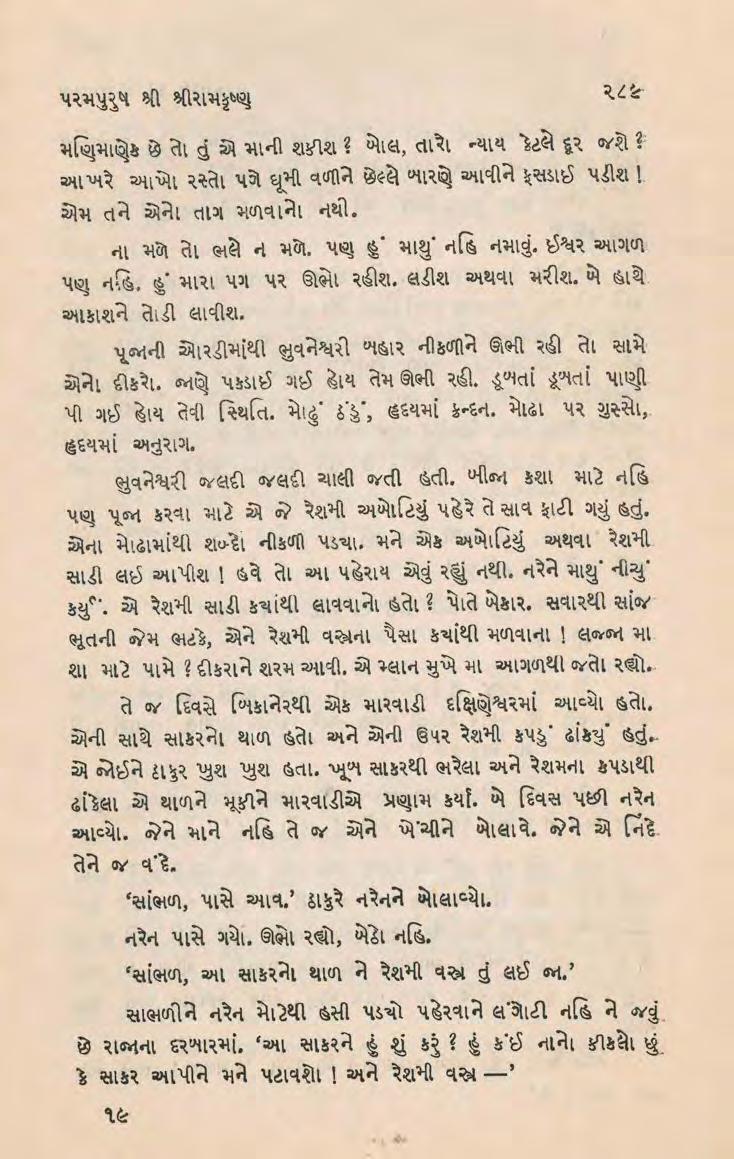 પરમપુરુષ શ્રી શ્રીરામકૃષ્ણ ૨૮૯
મણિમાણેક છે તો તું એ માની શકીશ? બોલ, તારો ન્યાય કેટલે દૂર જશે?
આખરે આખો રસ્તો પગે ઘૂમી વળીને છેલ્લે બારણે આવીને ફસડાઈ પડીશ!
એમ તને એનો તાગ મળવાનો નથી.
ના મળે તો ભલે ન મળે. પણ હું માથું નહિ નમાવું. ઈશ્વર આગળ
પણ નહિ. હું મારા પગ પર ઊભો રહીશ. લડીશ અથવા મરીશ. બે હાથે
આકાશને તોડી લાવીશ.
પૂજાની ઓરડીમાંથી ભુવનેશ્વરી બહાર નીકળીને ઊભી રહી તો સામે
એનો દીકરો. જાણે પકડાઈ ગઈ હોય તેમ ઊભી રહી. ડૂબતાં ડૂબતાં પાણી
પી ગઈ હોય તેવી સ્થિતિ. મોઢું ઠંડું, હૃદયમાં ક્રન્દન. મોઢા પર ગુસ્સો,
હૃદયમાં અનુરાગ.
ભુવનેશ્વરી જલદી જલદી ચાલી જતી હતી. બીજા કશા માટે નહિ
પણ પૂજા કરવા માટે એ જે રેશમી અબોટિયું પહેરે તે સાવ ફાટી ગયું હતું.
એના મોઢામાંથી શબ્દો નીકળી પડ્યા. મને એક અબોટિયું અથવા રેશમી
સાડી લઈ આપીશ! હવે તો આ પહેરાય એવું રહ્યું નથી. નરેને માથું નીચું
કર્યું. એ રેશમી સાડી ક્યાંથી લાવવાનો હતો? પોતે બેકાર. સવારથી સાંજ
ભૂતની જેમ ભટકે, એને રેશમી વસ્ત્રના પૈસા ક્યાંથી મળવાના! લજ્જા મા
શા માટે પામે? દીકરાને શરમ આવી. એ મ્લાન મુખે મા આગળથી જતો રહ્યો.
તે જ દિવસે બિકાનેરથી એક મારવાડી દક્ષિણેશ્વરમાં આવ્યો હતો.
એની સાથે સાકરનો થાળ હતો અને એની ઉપર રેશમી કપડું ઢાંક્યું હતું.
એ જોઈને ઠાકુર ખુશ ખુશ હતા. ખૂબ સાકરથી ભરેલા અને રેશમના કપડાથી
ઢાંકેલા એ થાળને મૂકીને મારવાડીએ પ્રણામ કર્યાં. બે દિવસ પછી નરેન
આવ્યો. જેને માને નહિ તે જ એને ખેંચીને બોલાવે. જેને એ નિંદે
તેને જ વંદે.
‘સાંભળ, પાસે આવ.’ ઠાકુરે નરેનને બોલાવ્યો.
નરેન પાસે ગયો. ઊભો રહ્યો, બેઠો નહિ.
‘સાંભળ, આ સાકરનો થાળ ને રેશમી વસ્ત્ર તું લઈ જા.’
સાભળીને નરેન મોટેથી હસી પડ્યો પહેરવાને લંગોટી નહિ ને જવું
છે રાજાના દરબારમાં. ‘આ સાકરને હું શું કરું? હું કંઈ નાનો કીકલો છું
કે સાકર આપીને મને પટાવશો! અને રેશમી વસ્ત્ર —’
૧૯